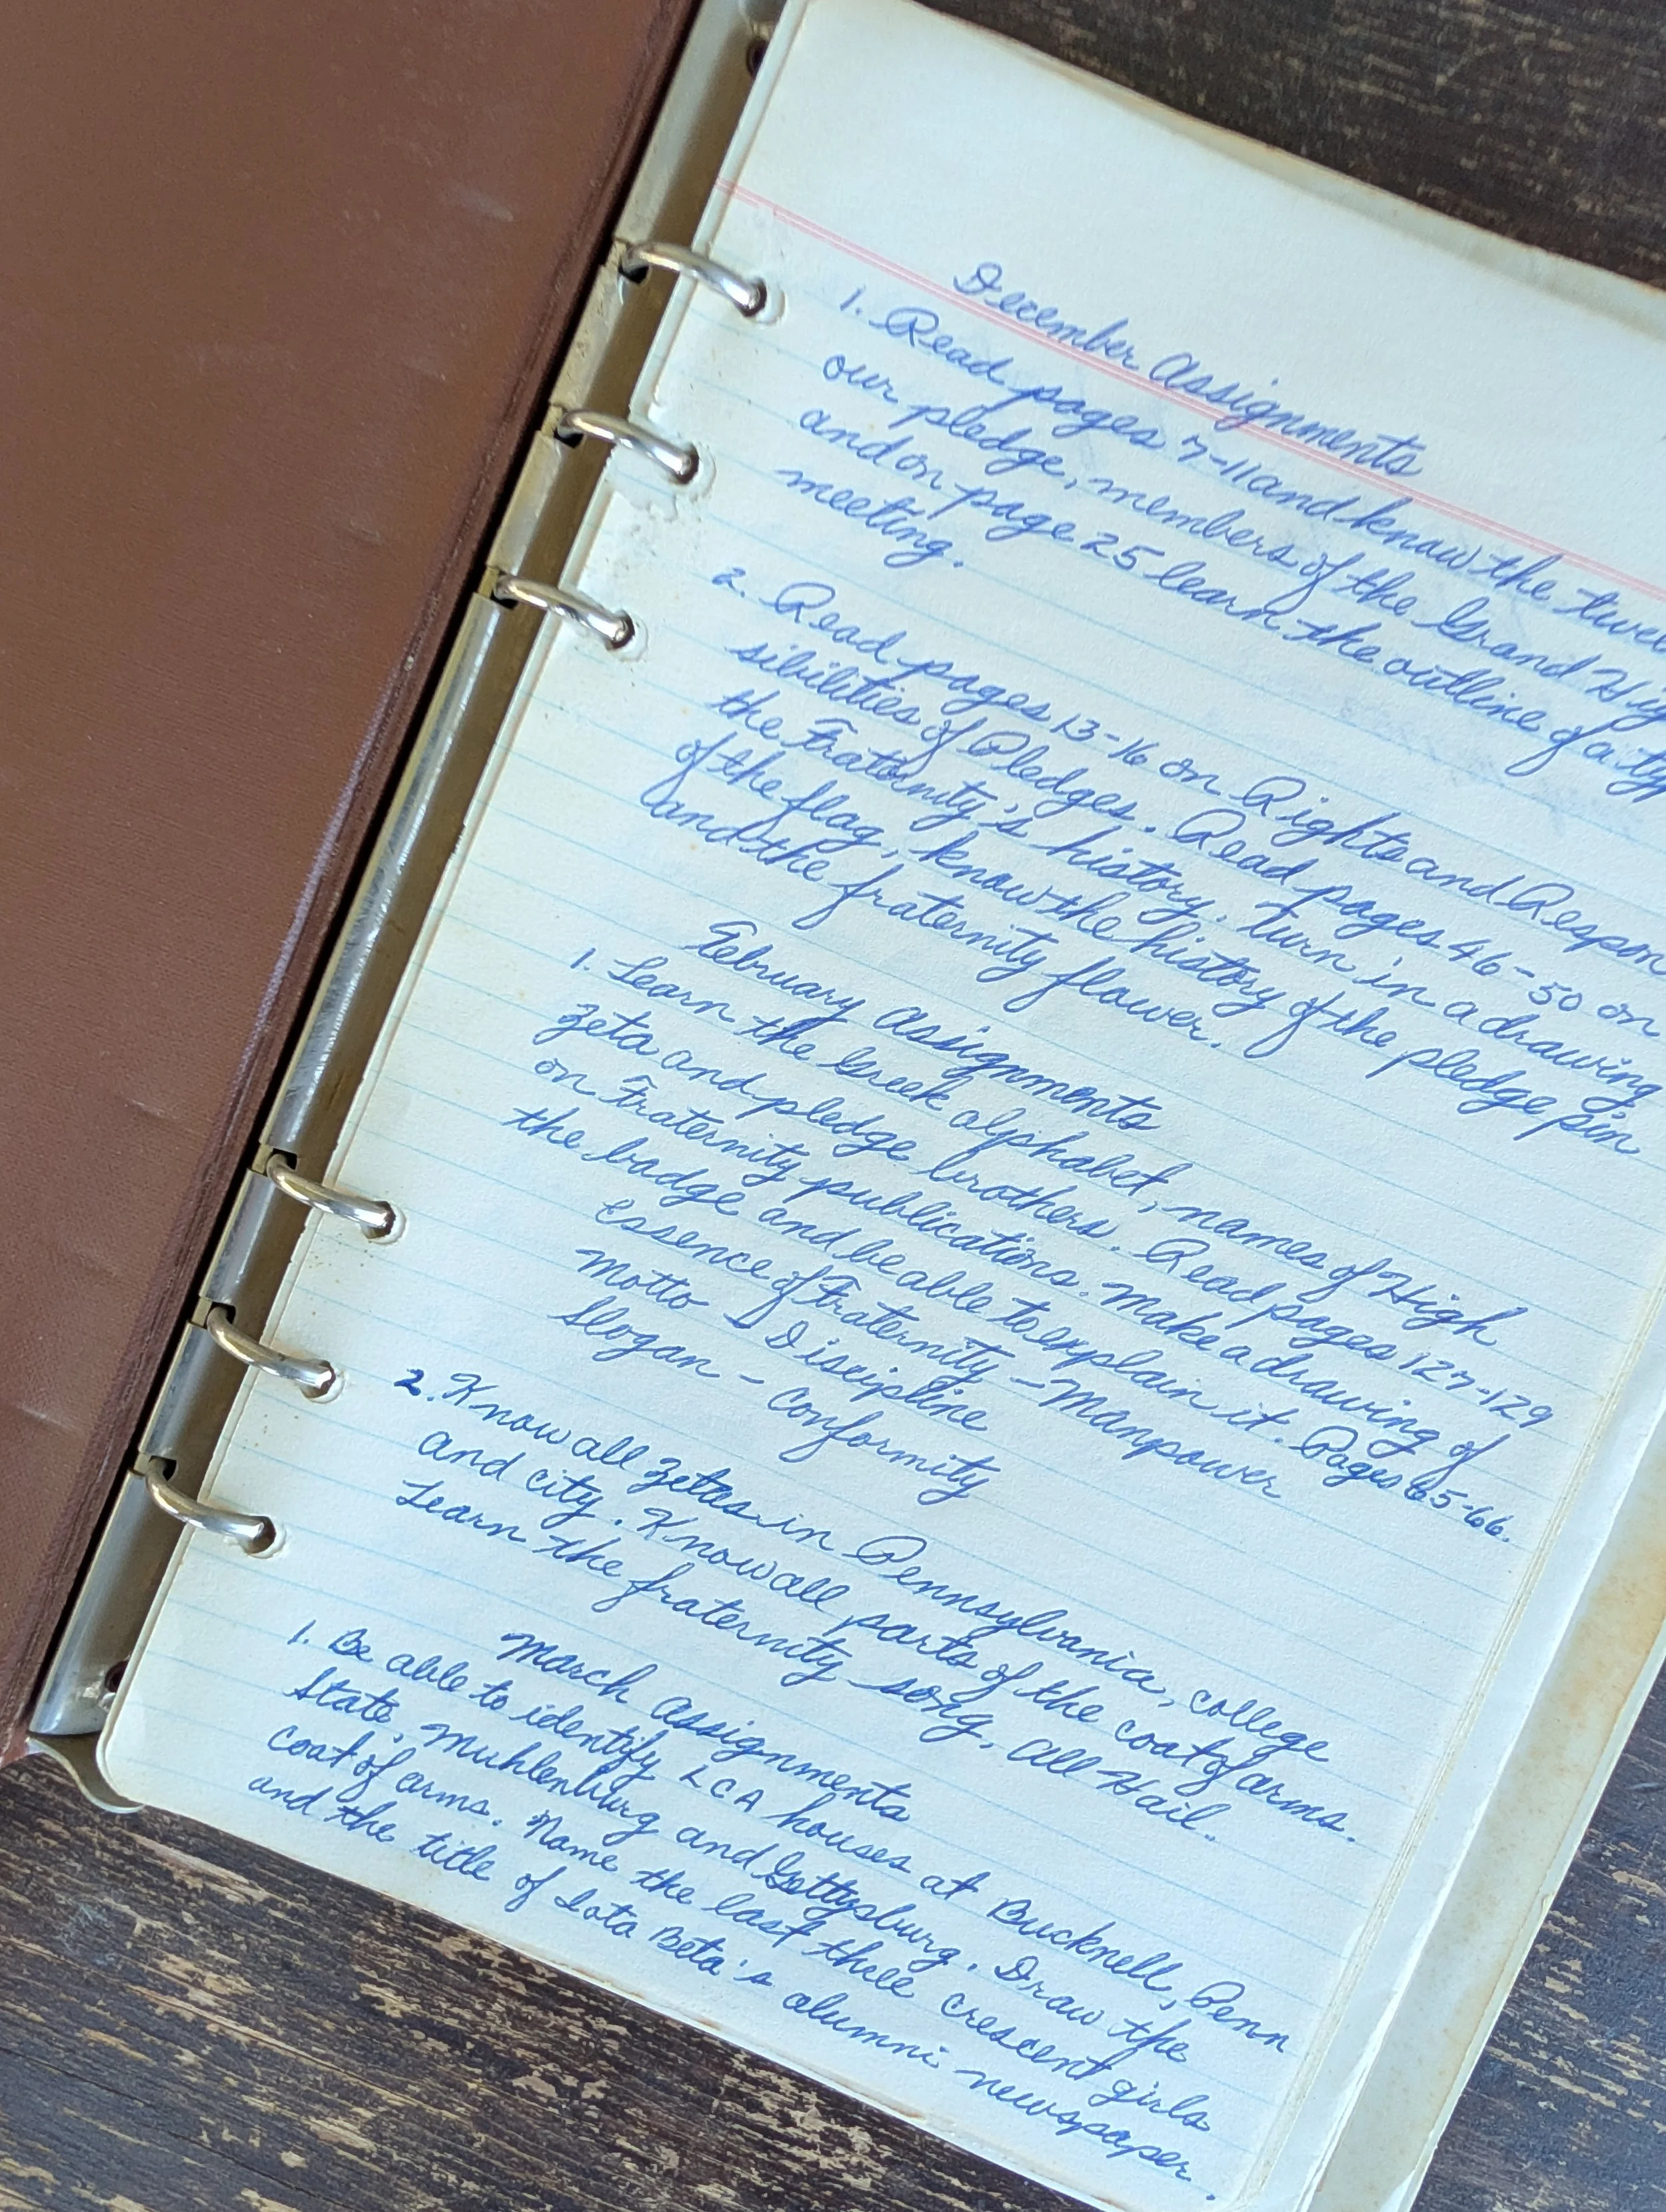 December Assignments
1. Read pages 7-11 and know the
our pledge, members of the Grand
and on page 25 learn the outline of a
meeting.
2. Read pages 13-16 on Rights and Respon
sibilities of Pledges. Read pages 46-50 on
the Fraternity's history. Turn in a drawing
of the flag, know the history of the pledge pin
and the fraternity flower.
February Assignments
1. Learn the Greek alphabet, names of High
Zeta and pledge brothers. Read pages 127-129
on Fraternity publications. Make a drawing of
the badge and be able to explain it. Pages 65-66.
Essence of Fraternity - Manpower
Motto - Discipline
Slogan - Conformity
2. Know all Zetas in Pennsylvania, college
and city. Know all parts of the coat of arms.
Learn the fraternity song, All Hail.
March Assignments
1. Be able to identify LCA houses at Bucknell, Penn
State, Muhlenburg and Gettysburg. Draw the
coat of arms. Name the last three crescent girls
and the title of Iota Beta's alumni newspaper.